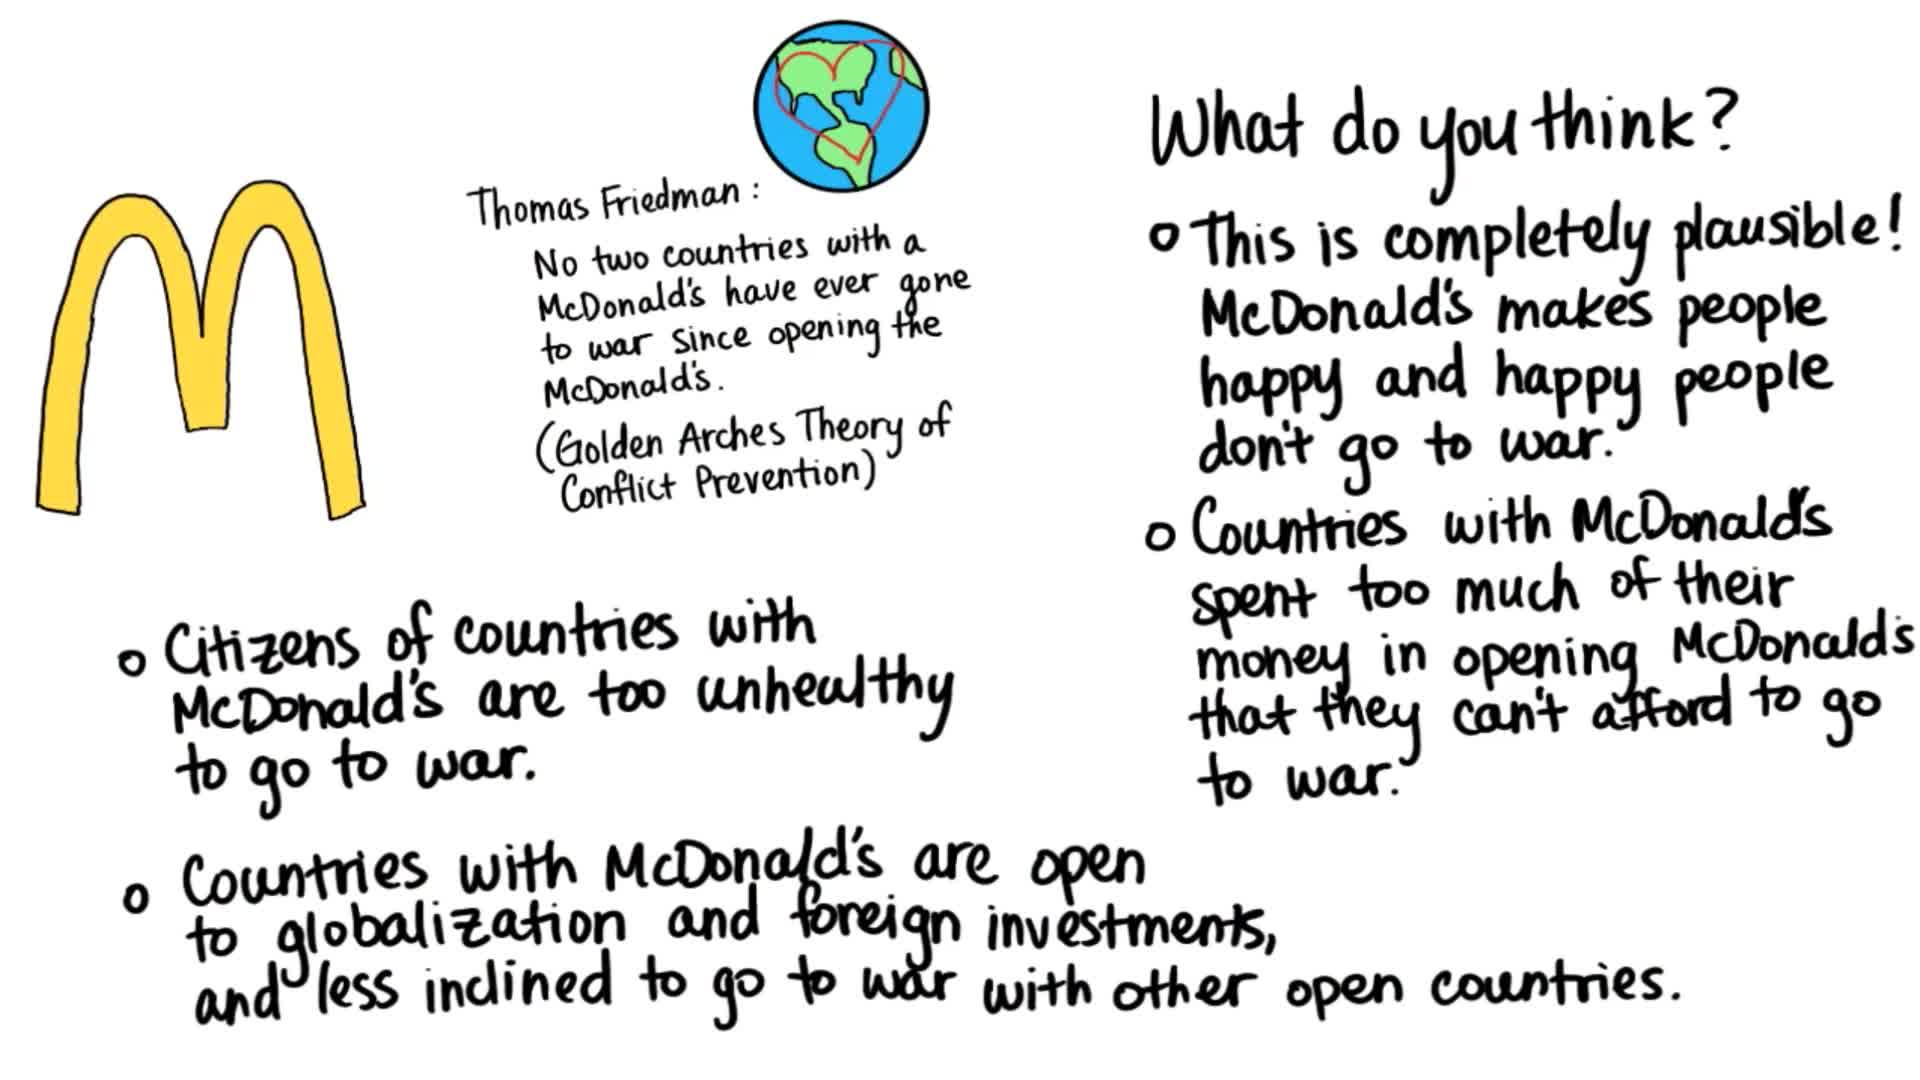 Thomas Friedman:
No two countries with a
McDonald's have ever gone
to war since opening the
McDonald's.
(Golden Arches Theory of
Conflict Prevention)
What do you think?
o This is completely plausible!
McDonald's makes people
happy and happy people
don't go to war.
o Countries with McDonald's
spent too much of their
money in opening McDonald's
that they can't afford to go
to war.
o Citizens of countries with
McDonald's are too unhealthy
to go to war.
o Countries with McDonald's are open
to globalization and foreign investments,
and less inclined to go to war with other open countries.